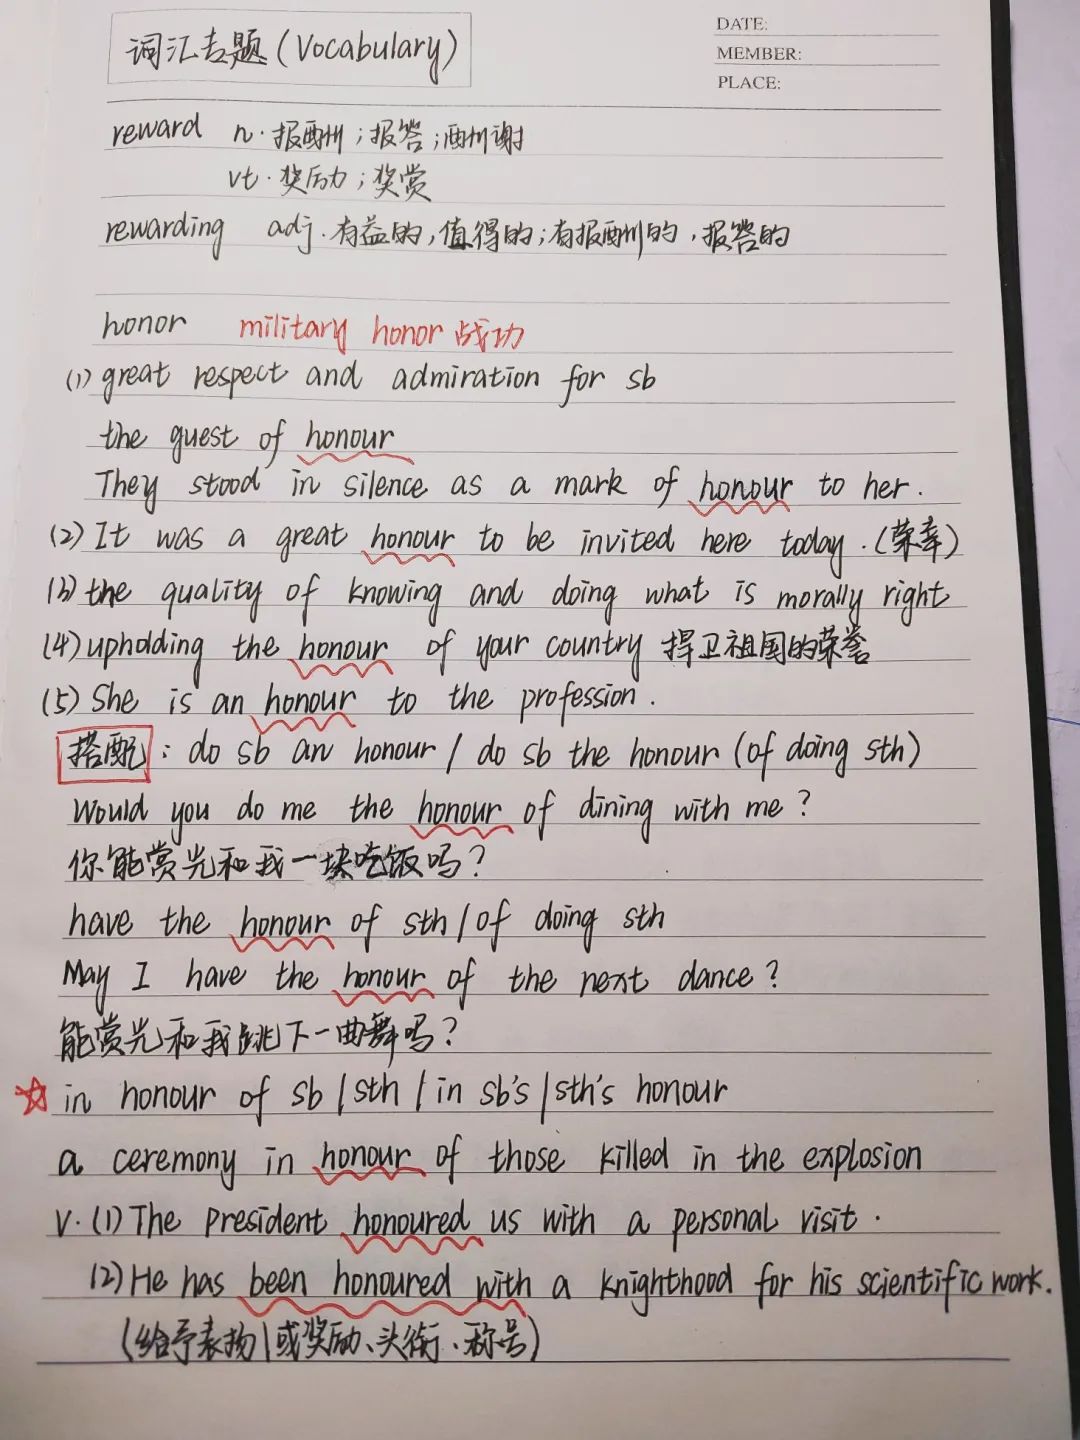 DATE:
词汇专题(Vocabulary)
MEMBER:
PLACE:
reward n.报酬;报答;酬谢
vt.奖励;奖赏
rewarding adj.有益的,值得的;有报酬的,报答的
honor military honor 战功
(1) great respect and admiration for sb
the guest of honour
They stood in silence as a mark of honour to her.
(2) It was a great honour to be invited here today.(荣幸)
(3) the quality of knowing and doing what is morally right
(4) upholding the honour of your country 捍卫祖国的荣誉
(5) She is an honour to the profession.
搭配: do sb an honour / do sb the honour (of doing sth)
Would you do me the honour of dining with me?
你能赏光和我一块吃饭吗?
have the honour of sth / of doing sth
May I have the honour of the next dance?
能赏光和我跳下一曲舞吗?
☆ in honour of sb / sth / in sb's / sth's honour
a ceremony in honour of those killed in the explosion
v. (1) The president honoured us with a personal visit.
(2) He has been honoured with a knighthood for his scientific work.
(给予表扬\或奖励、头衔、称号)